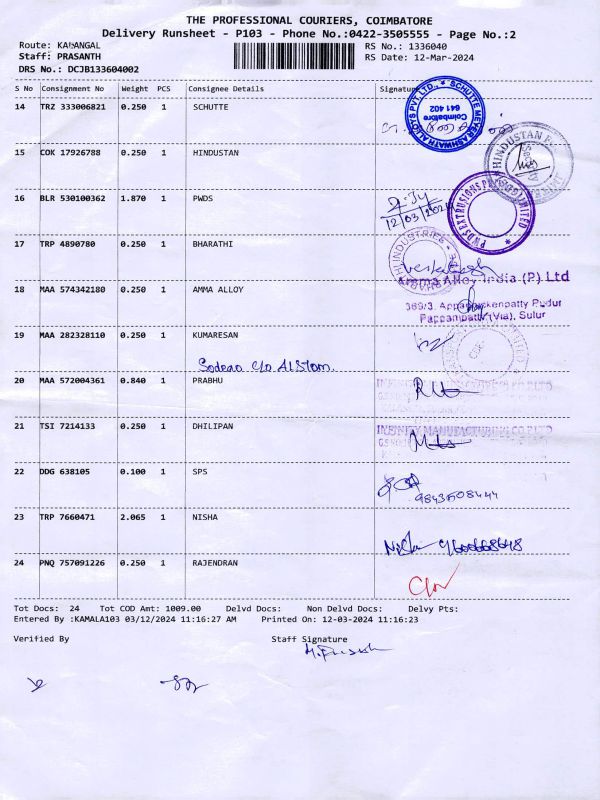 THE PROFESSIONAL COURIERS, COIMBATORE
Delivery Runsheet - P103 - Phone No.:0422-3505555 - Page No.:2
Route: KANANGAL RS No.: 1336040
Staff: PRASANTH RS Date: 12-Mar-2024
DRS No.: DCJB133604002
S No Consignment No Weight PCS Consignee Details Signature
14 TRZ 333006821 0.250 1 SCHUTTE
SCHUTTE MEYER ASHWATH ALLOYS PVT. LTD., Coimbatore 641 402
15 COK 17926788 0.250 1 HINDUSTAN
HINDUSTAN
16 BLR 530100362 1.870 1 PWDS
12/03/2024
PWDS EXTRUSIONS LIMITED
17 TRP 4890780 0.250 1 BHARATHI
BHARATHI INDUSTRIES
18 MAA 574342180 0.250 1 AMMA ALLOY
Amma Alloy India (P) Ltd
369/3, Pudur
Pappampatti (Via), Sulur
19 MAA 282328110 0.250 1 KUMARESAN
Sodexo c/o Alstom.
20 MAA 572004361 0.840 1 PRABHU
21 TSI 7214133 0.250 1 DHILIPAN
INFINITY MANUFACTURING CO PLTD
22 DDG 638105 0.100 1 SPS
23 TRP 7660471 2.065 1 NISHA
Nisha
24 PNQ 757091226 0.250 1 RAJENDRAN
Tot Docs: 24 Tot COD Amt: 1009.00 Delvd Docs: Non Delvd Docs: Delvy Pts:
Entered By :KAMALA103 03/12/2024 11:16:27 AM Printed On: 12-03-2024 11:16:23
Verified By Staff Signature